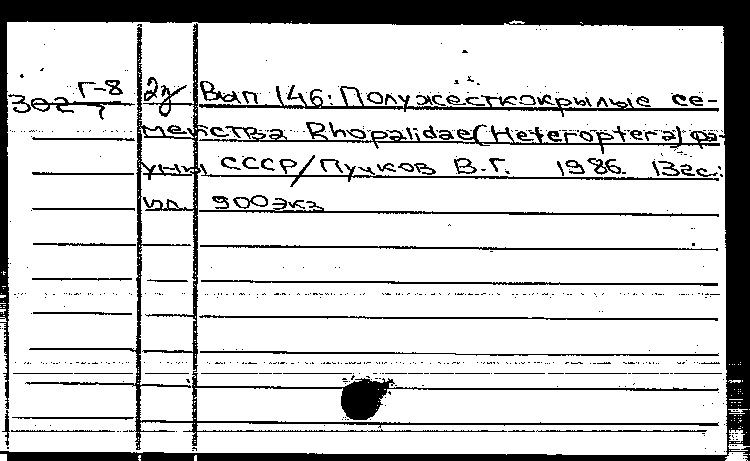 302 Г-8/7 2з Вып 146: Полужесткокрылые се-
мейства Rhopalidae (Heteroptera) фа-
уны СССР/Пучков В.Г. 1986. 132с.:
ил. 900экз